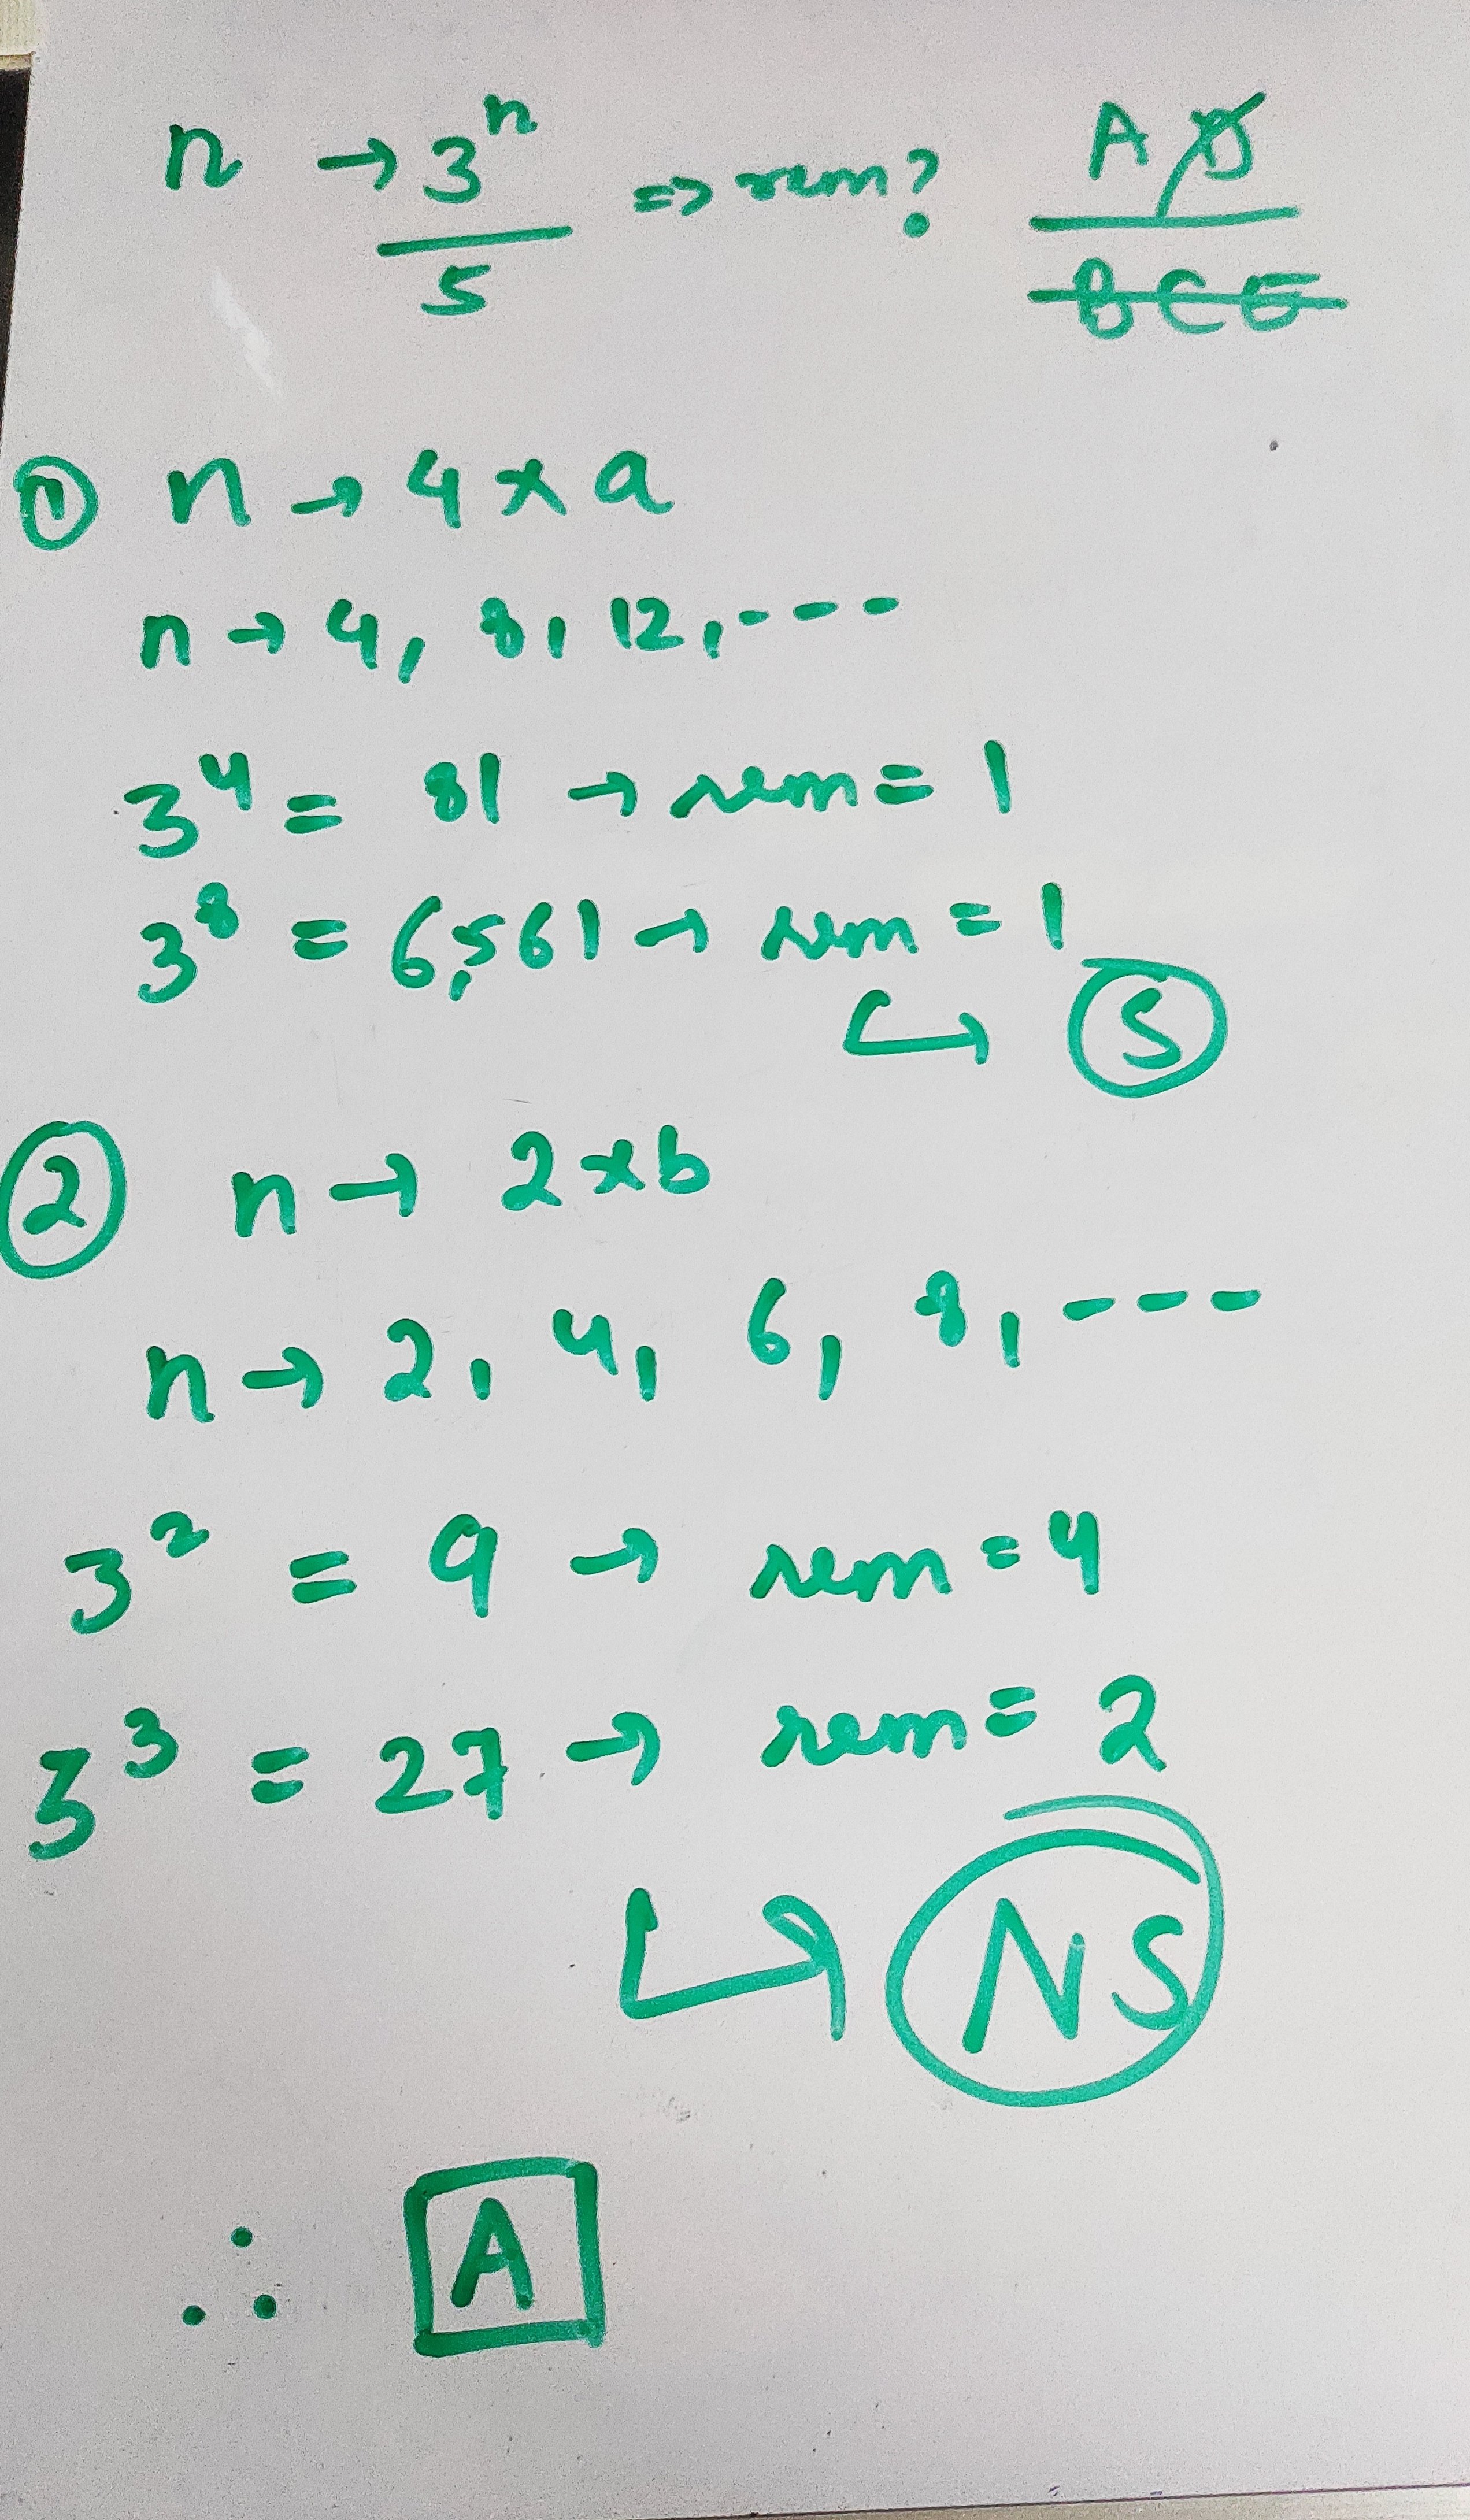 n → 3ⁿ / 5 => rem? A D
B C E
① n → 4 x a
n → 4, 8, 12, ---
3⁴ = 81 → rem = 1
3⁸ = 6,561 → rem = 1
↳ S
② n → 2 x b
n → 2, 4, 6, 8, ---
3² = 9 → rem = 4
3³ = 27 → rem = 2
↳ NS
∴ A